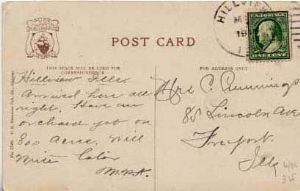 HILLVIE
POST CARD
THIS SPACE MAY BE USED FOR CORRESPONDENCE
FOR ADDRESS ONLY
Hillview Ills
Arrived here all
right. Have an
orchard get on
800 acres. Will
write later
Mrs C Cummings
85 Lincoln Ave
Freeport.
Ills